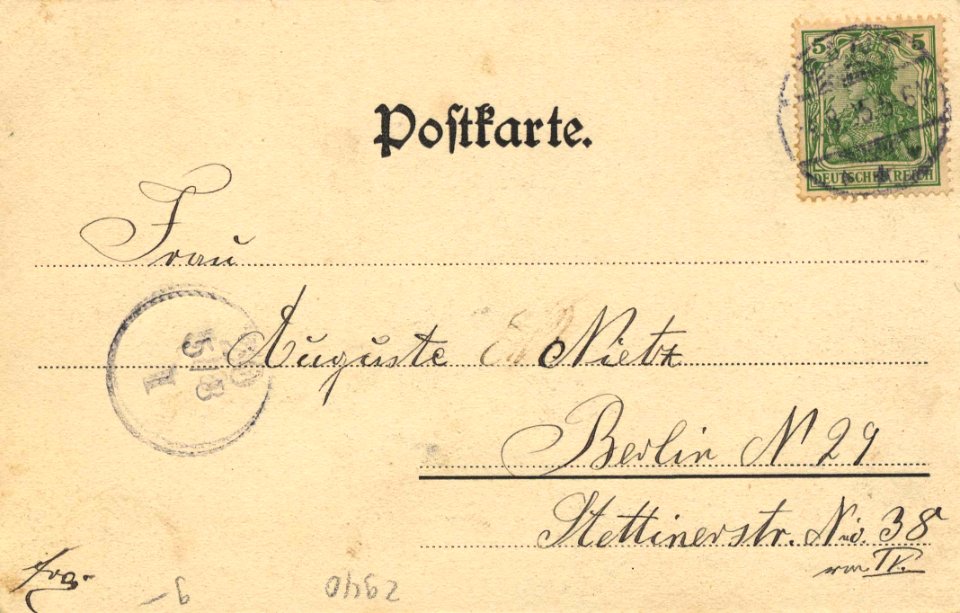 5 5
DEUTSCHES REICH
Postkarte.
Frau
Auguste Nietz
Berlin N 29
Stettinerstr. No. 38
IV.
frz.
9
2940